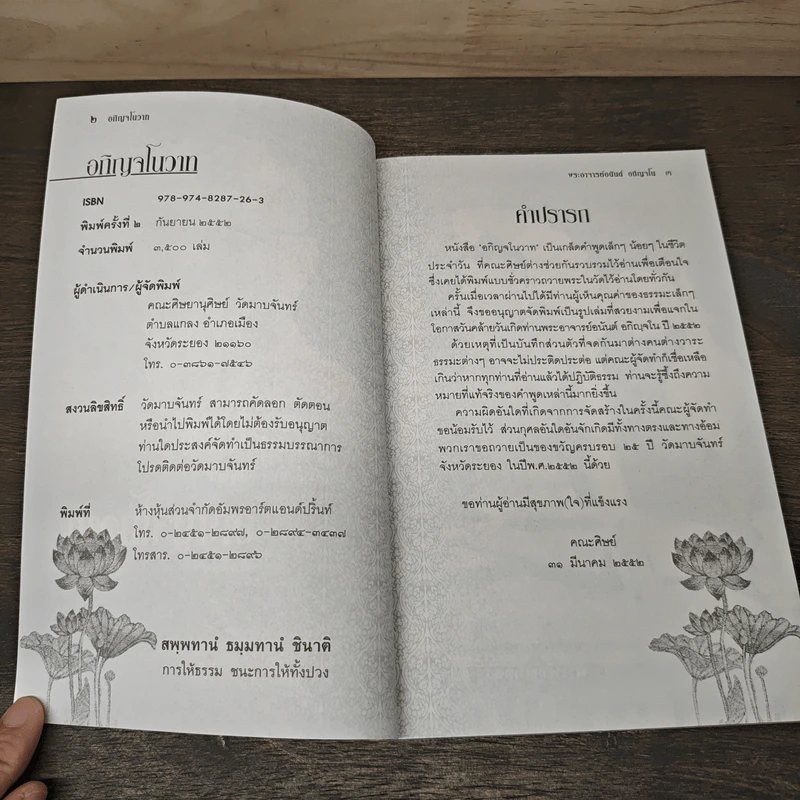 ๒ อกิญจโนวาท
อกิญจโนวาท
ISBN 978-974-8287-26-3
พิมพ์ครั้งที่ ๒ กันยายน ๒๕๕๒
จำนวนพิมพ์ ๓,๕๐๐ เล่ม
ผู้ดำเนินการ/ผู้จัดพิมพ์
คณะศิษยานุศิษย์ วัดมาบจันทร์
ตำบลแกลง อำเภอเมือง
จังหวัดระยอง ๒๑๑๖๐
โทร. ๐-๓๘๖๑-๗๕๔๖
สงวนลิขสิทธิ์ วัดมาบจันทร์ สามารถคัดลอก ตัดตอน
หรือนำไปพิมพ์ได้โดยไม่ต้องรับอนุญาต
ท่านใดประสงค์จัดทำเป็นธรรมบรรณาการ
โปรดติดต่อวัดมาบจันทร์
พิมพ์ที่ ห้างหุ้นส่วนจำกัดอัมพรอาร์ตแอนด์ปริ้นท์
โทร. ๐-๒๔๕๑-๒๘๙๗, ๐-๒๘๙๔-๓๔๓๗
โทรสาร. ๐-๒๔๕๑-๒๘๙๖
สพฺพทานํ ธมฺมทานํ ชินาติ
การให้ธรรม ชนะการให้ทั้งปวง
พระอาจารย์อนันต์ อกิญฺจโน ๓
คำปรารภ
หนังสือ "อกิญจโนวาท" เป็นเกล็ดคำพูดเล็กๆ น้อยๆ ในชีวิต
ประจำวัน ที่คณะศิษย์ต่างช่วยกันรวบรวมไว้อ่านเพื่อเตือนใจ
ซึ่งเคยได้พิมพ์แบบชั่วคราวถวายพระในวัดไว้อ่านโดยทั่วกัน
ครั้นเมื่อเวลาผ่านไปได้มีท่านผู้เห็นคุณค่าของธรรมะเล็กๆ
เหล่านี้ จึงขออนุญาตจัดพิมพ์เป็นรูปเล่มที่สวยงามเพื่อแจกใน
โอกาสวันคล้ายวันเกิดท่านพระอาจารย์อนันต์ อกิญฺจโน ปี ๒๕๕๒
ด้วยเหตุที่เป็นบันทึกส่วนตัวที่จดกันมาต่างคนต่างวาระ
ธรรมะต่างๆ อาจจะไม่ประติดประต่อ แต่คณะผู้จัดทำก็เชื่อเหลือ
เกินว่าหากทุกท่านที่อ่านแล้วได้ปฏิบัติธรรม ท่านจะรู้ซึ้งถึงความ
หมายที่แท้จริงของคำพูดเหล่านี้มากยิ่งขึ้น
ความผิดอันใดที่เกิดจากการจัดสร้างในครั้งนี้คณะผู้จัดทำ
ขอน้อมรับไว้ ส่วนกุศลอันใดอันจักเกิดมีทั้งทางตรงและทางอ้อม
พวกเราขอถวายเป็นของขวัญครบรอบ ๒๕ ปี วัดมาบจันทร์
จังหวัดระยอง ในปีพ.ศ.๒๕๕๒ นี้ด้วย
ขอท่านผู้อ่านมีสุขภาพ(ใจ)ที่แข็งแรง
คณะศิษย์
๓๑ มีนาคม ๒๕๕๒